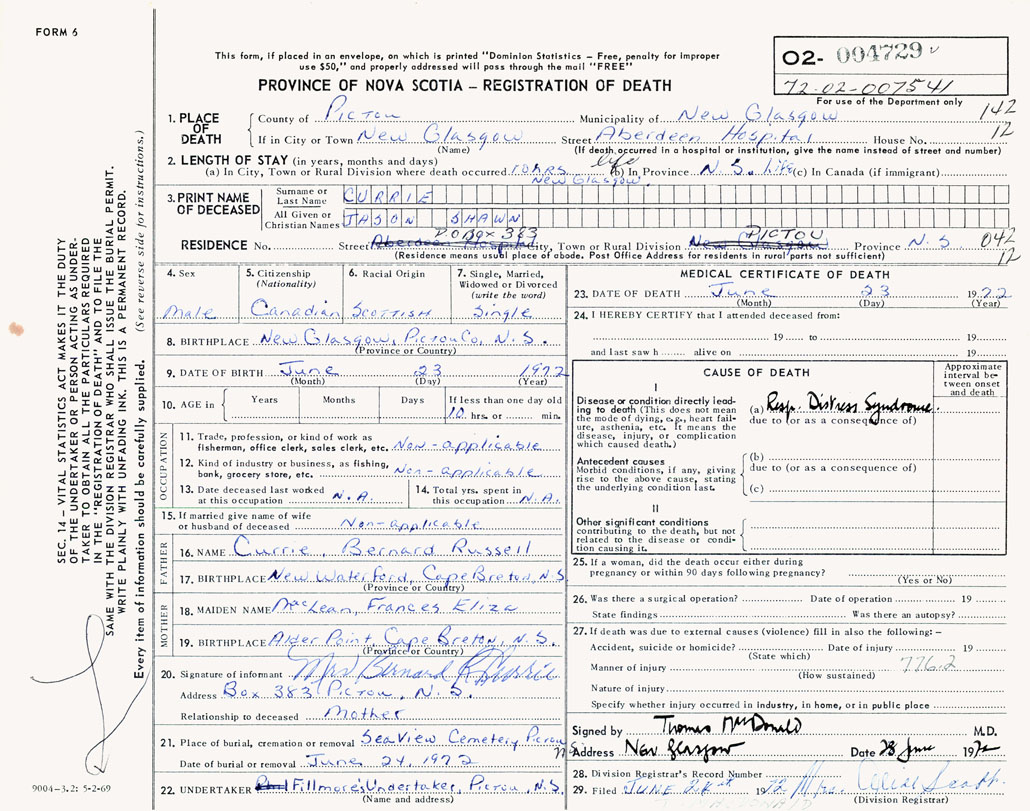 FORM 6
This form, if placed in an envelope, on which is printed "Dominion Statistics – Free, penalty for improper
use $50," and properly addressed will pass through the mail "FREE"
PROVINCE OF NOVA SCOTIA – REGISTRATION OF DEATH
O2- 004729
72-02-007541
For use of the Department only
142
12
1. PLACE OF DEATH
County of Pictou Municipality of New Glasgow
If in City or Town New Glasgow Street Aberdeen Hospital House No.
(Name) (If death occurred in a hospital or institution, give the name instead of street and number)
2. LENGTH OF STAY (in years, months and days) life
(a) In City, Town or Rural Division where death occurred 10 hrs (b) In Province N.S. Life (c) In Canada (if immigrant)
New Glasgow.
3. PRINT NAME OF DECEASED
Surname or Last Name CURRIE
All Given or Christian Names JASON SHAWN
P.O. Box 383 PICTOU
RESIDENCE No. Street Aberdeen Hospital City, Town or Rural Division New Glasgow Province N.S
(Residence means usual place of abode. Post Office Address for residents in rural parts not sufficient)
042
12
4. Sex
Male
5. Citizenship
(Nationality)
Canadian
6. Racial Origin
Scottish
7. Single, Married,
Widowed or Divorced
(write the word)
Single
8. BIRTHPLACE New Glasgow, Pictou Co, N.S.
(Province or Country)
9. DATE OF BIRTH June 23 1972
(Month) (Day) (Year)
10. AGE in Years Months Days If less than one day old
10 hrs. or min.
OCCUPATION
11. Trade, profession, or kind of work as
fisherman, office clerk, sales clerk, etc. Non-applicable
12. Kind of industry or business, as fishing,
bank, grocery store, etc. Non-applicable
13. Date deceased last worked
at this occupation N.A.
14. Total yrs. spent in
this occupation N.A.
15. If married give name of wife
or husband of deceased Non-applicable
FATHER
16. NAME Currie, Bernard Russell
17. BIRTHPLACE New Waterford, Cape Breton, N.S
(Province or Country)
MOTHER
18. MAIDEN NAME MacLean, Frances Eliza
19. BIRTHPLACE Alder Point, Cape Breton, N.S.
(Province or Country)
20. Signature of informant Mrs Bernard R Currie
Address Box 383 Pictou, N.S.
Relationship to deceased Mother
21. Place of burial, cremation or removal Sea View Cemetery Pictou
N.S
Date of burial or removal June 24, 1972
22. UNDERTAKER Fillmore's Undertaker, Pictou, N.S
(Name and address)
MEDICAL CERTIFICATE OF DEATH
23. DATE OF DEATH June 23 1972
(Month) (Day) (Year)
24. I HEREBY CERTIFY that I attended deceased from:
19 to 19
and last saw h alive on 19
CAUSE OF DEATH
Approximate interval between onset and death
I
Disease or condition directly lead-
ing to death (This does not mean
the mode of dying, e.g., heart fail-
ure, asthenia, etc. It means the
disease, injury, or complication
which caused death.)
(a) Resp. Distress Syndrome.
due to (or as a consequence of)
Antecedent causes
Morbid conditions, if any, giving
rise to the above cause, stating
the underlying condition last.
(b)
due to (or as a consequence of)
(c)
II
Other significant conditions
contributing to the death, but not
related to the disease or condi-
tion causing it.
25. If a woman, did the death occur either during
pregnancy or within 90 days following pregnancy?
(Yes or No)
26. Was there a surgical operation? Date of operation 19
State findings Was there an autopsy?
27. If death was due to external causes (violence) fill in also the following: –
Accident, suicide or homicide? Date of injury 19
(State which)
Manner of injury 776.2
(How sustained)
Nature of injury
Specify whether injury occurred in industry, in home, or in public place
Signed by Thomas McDonald M.D.
Address New Glasgow Date 28 June 1972
28. Division Registrar's Record Number
29. Filed JUNE 1972 Mrs.
(Division Registrar)
SEC. 14 – VITAL STATISTICS ACT MAKES IT THE DUTY
OF THE UNDERTAKER OR PERSON ACTING AS UNDER-
TAKER TO OBTAIN ALL THE PARTICULARS REQUIRED
IN THE "REGISTRATION OF DEATH" AND TO FILE THE
SAME WITH THE DIVISION REGISTRAR WHO SHALL ISSUE THE BURIAL PERMIT.
WRITE PLAINLY WITH UNFADING INK. THIS IS A PERMANENT RECORD.
Every item of information should be carefully supplied. (See reverse side for instructions.)
9004-3.2: 5-2-69